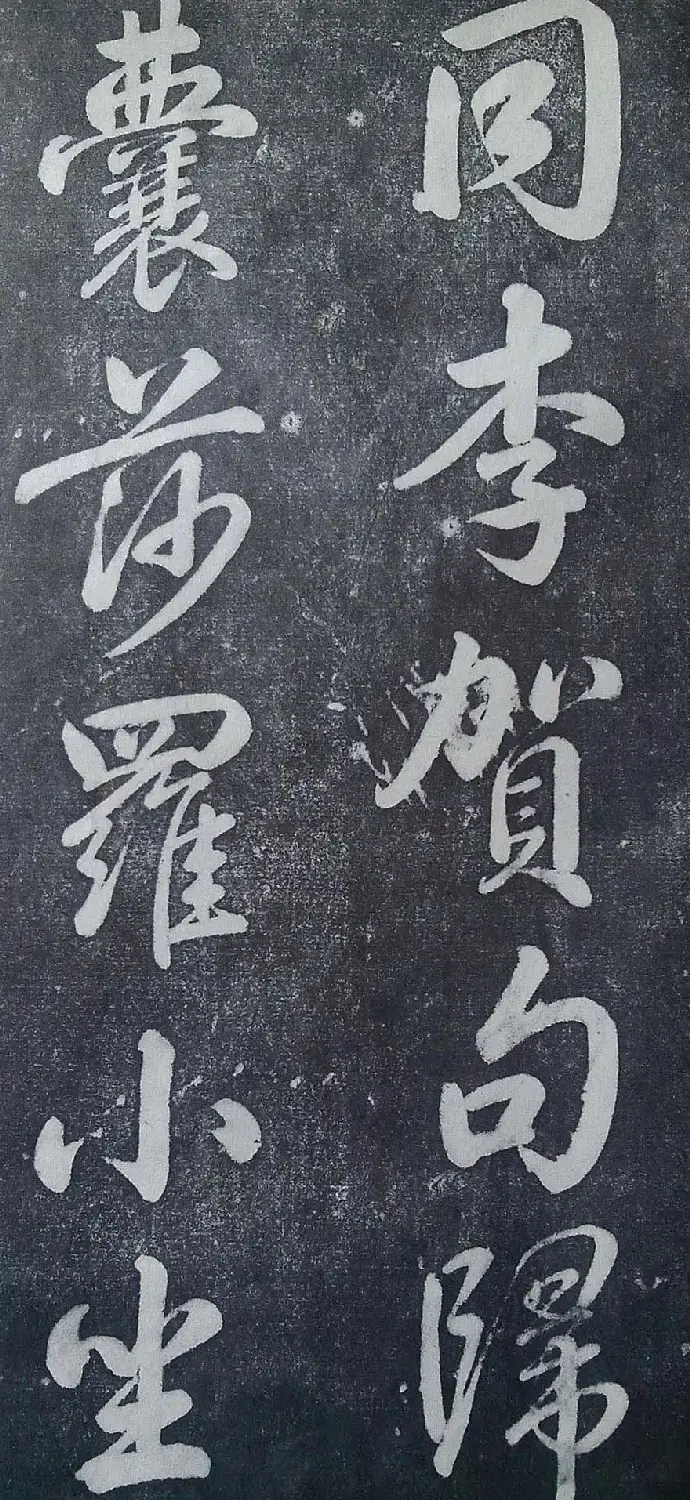 同李賀句歸
囊莎羅小坐